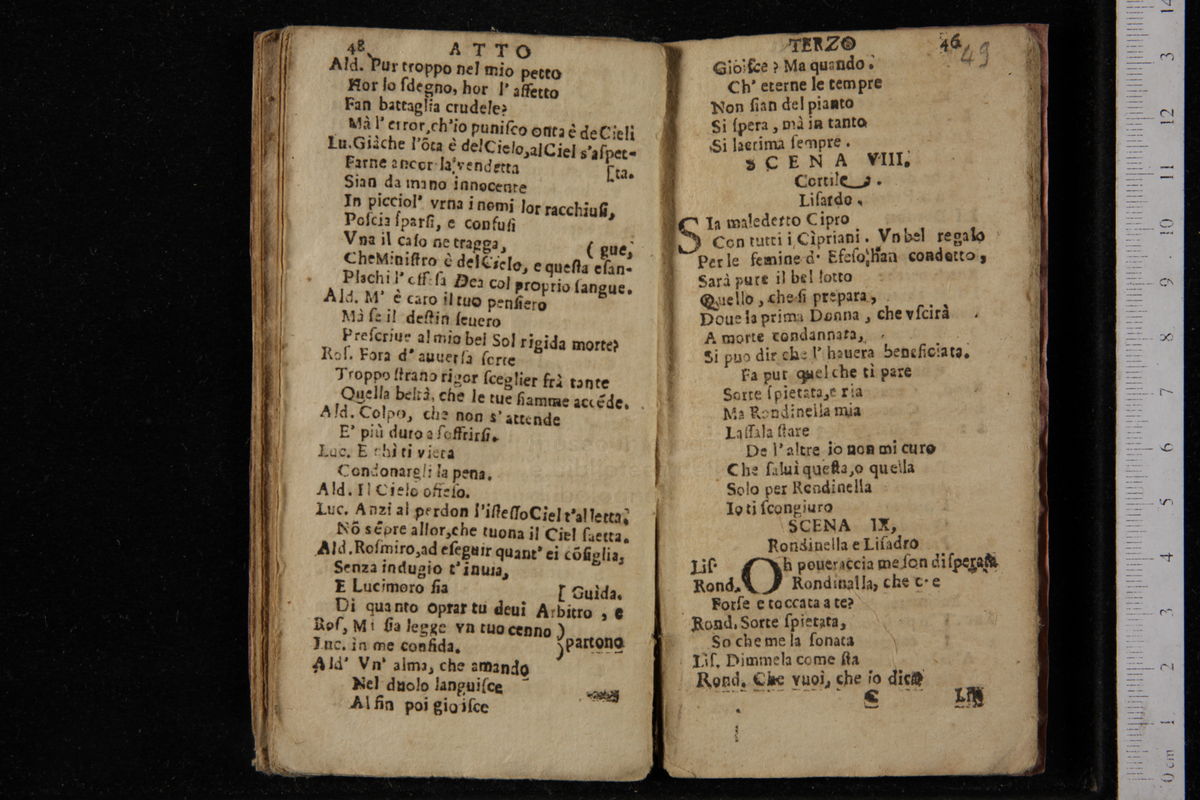 48 ATTO
Ald. Pur troppo nel mio petto
Hor lo ſdegno, hor l' affetto
Fan battaglia crudele?
Mà l' error, ch'io puniſco onta è de Cieli
Lu. Giàche l'ōta è del Cielo, al Ciel s'aſpet-
Farne ancor la vendetta [ta.
Sian da mano innocente
In picciol' vrna i nomi lor racchiuſi,
Poſcia ſparſi, e confuſi
Vna il caſo ne tragga, ( gue,
Che Miniſtro è del Cielo, e queſta eſan-
Plachi l' offeſa Dea col proprio ſangue.
Ald. M' è caro il tuo penſiero
Mà ſe il deſtin ſeuero
Preſcriue al mio bel Sol rigida morte?
Roſ. Fora d' auuerſa ſorte
Troppo ſtrano rigor ſceglier frà tante
Quella beltà, che le tue fiamme accēde.
Ald. Colpo, che non s' attende
E' più duro a ſoffrirſi.
Luc. E chi ti vieta
Condonargli la pena.
Ald. Il Cielo offeſo.
Luc. Anzi al perdon l'iſteſſo Ciel t'alletta;
Nō sēpre allor, che tuona il Ciel ſaetta.
Ald. Roſmiro, ad eſeguir quant' ei cōſiglia,
Senza indugio t' inuia,
E Lucimoro ſia [ Guida.
Di quanto oprar tu deui Arbitro, e
Roſ, Mi ſia legge vn tuo cenno )
Luc. in me confida. ) partono
Ald' Vn' alma, che amando
Nel duolo languiſce
Al fin poi gioiſce
TERZO 46
49
Gioiſce? Ma quando.
Ch' eterne le tempre
Non ſian del pianto
Si ſpera, mà in tanto
Si lacrima ſempre.
SCENA VIII.
Cortile.
Liſardo.
SIa maledetto Cipro
Con tutti i Cipriani. Vn bel regalo
Per le femine d' Efeſo, han condotto,
Sarà pure il bel lotto
Quello, che ſi prepara,
Doue la prima Donna, che vſcirà
A morte condannata,
Si puo dir che l' hauera beneficiata.
Fa pur quel che ti pare
Sorte ſpietata, e ria
Ma Rondinella mia
Laſſala ſtare
De l' altre io non mi curo
Che ſalui queſta, o quella
Solo per Rondinella
Io ti ſcongiuro
SCENA IX,
Rondinella e Liſadro
Liſ. Oh poueraccia me ſon diſperata
Rond. Rondinalla, che c'e
Forſe e toccata a te?
Rond. Sorte ſpietata,
So che me la ſonata
Liſ. Dimmela come ſta
Rond. Che vuoi, che io dica
S Liſ